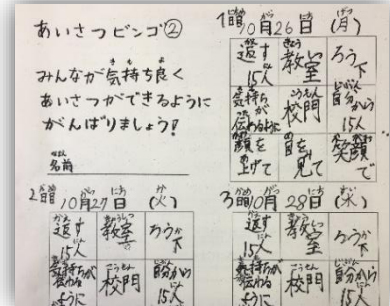 あいさつビンゴ②
みんなが気持ち良く
あいさつができるように
がんばりましょう!
名前
1日目 10月26日(月)
返す 15人 教室 ろう下
気持ちが伝わるように 校門 自分から 15人
顔を上げて 目を見て 笑顔で
2日目 10月27日(火)
返す 15人 教室 ろうか下
気持ちが伝わるように 校門 自分から 15人
3日目 10月28日(水)
返す 15人 教室 ろう下
気持ちが伝わるように 校門 自分から 15人